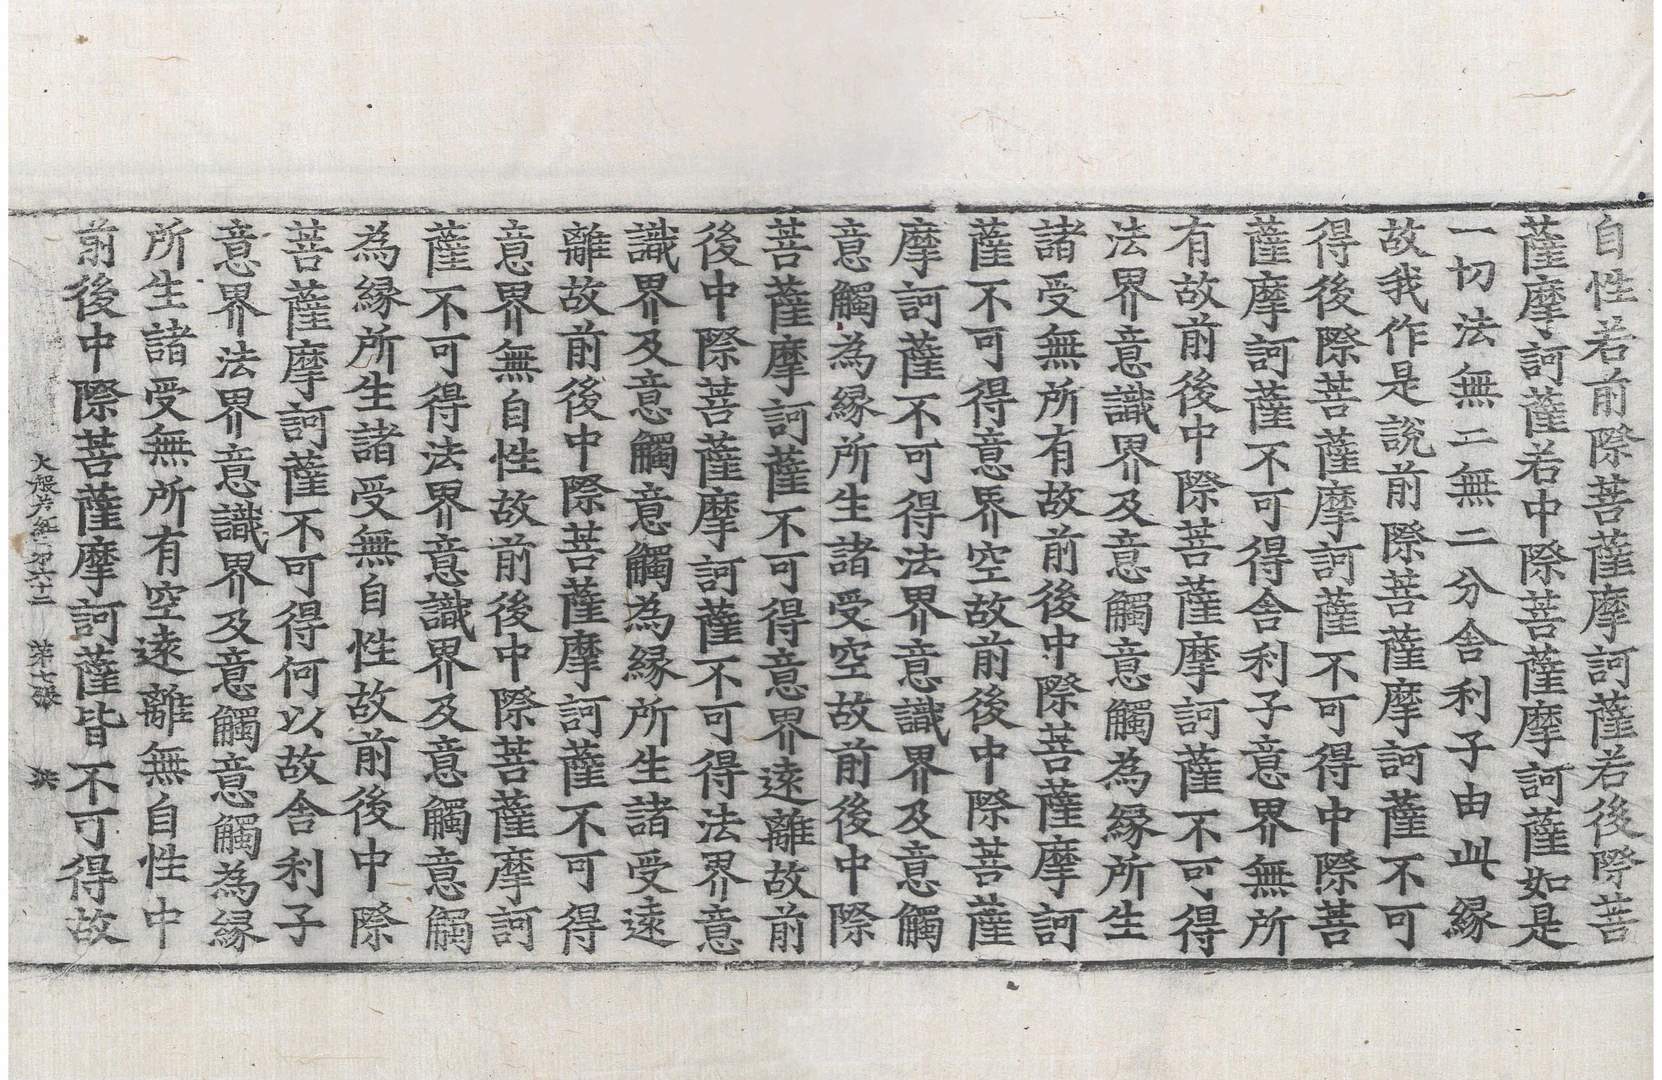 自性若前際菩薩摩訶薩若後際菩
薩摩訶薩若中際菩薩摩訶薩如是
一切法無二無二分舍利子由此縁
故我作是說前際菩薩摩訶薩不可
得後際菩薩摩訶薩不可得中際菩
薩摩訶薩不可得舍利子意界無所
有故前後中際菩薩摩訶薩不可得
法界意識界及意觸意觸為縁所生
諸受無所有故前後中際菩薩摩訶
薩不可得意界空故前後中際菩薩
摩訶薩不可得法界意識界及意觸
意觸為縁所生諸受空故前後中際
菩薩摩訶薩不可得意界遠離故前
後中際菩薩摩訶薩不可得法界意
識界及意觸意觸為縁所生諸受遠
離故前後中際菩薩摩訶薩不可得
意界無自性故前後中際菩薩摩訶
薩不可得法界意識界及意觸意觸
為縁所生諸受無自性故前後中際
菩薩摩訶薩不可得何以故舍利子
意界法界意識界及意觸意觸為縁
所生諸受無所有空遠離無自性中
前後中際菩薩摩訶薩皆不可得故
大般若經第六十二 第七張 洪